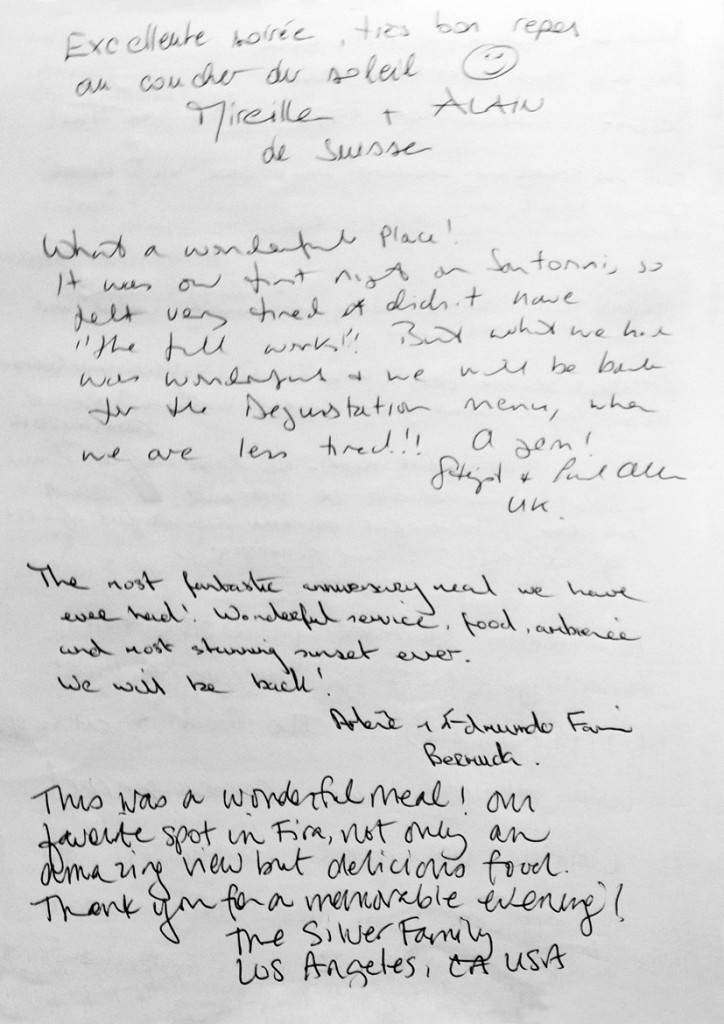 Excellente soirée, très bon repas
au coucher du soleil
Mireille + ALAIN
de Suisse
What a wonderful place!
It was our first night on Santorini, so
felt very tired & didn't have
"the full works"! But what we had
was wonderful & we will be back
for the Degustation menu, when
we are less tired!!! A gem!
& Paul Allen
UK.
The most fantastic anniversary meal we have
ever had! Wonderful service, food, ambience
and most stunning sunset ever.
We will be back!
+ Edmundo
Bermuda.
This was a wonderful meal! Our
favorite spot in Fira, not only an
amazing view but delicious food.
Thank you for a memorable evening!
The Silver Family
Los Angeles, CA USA